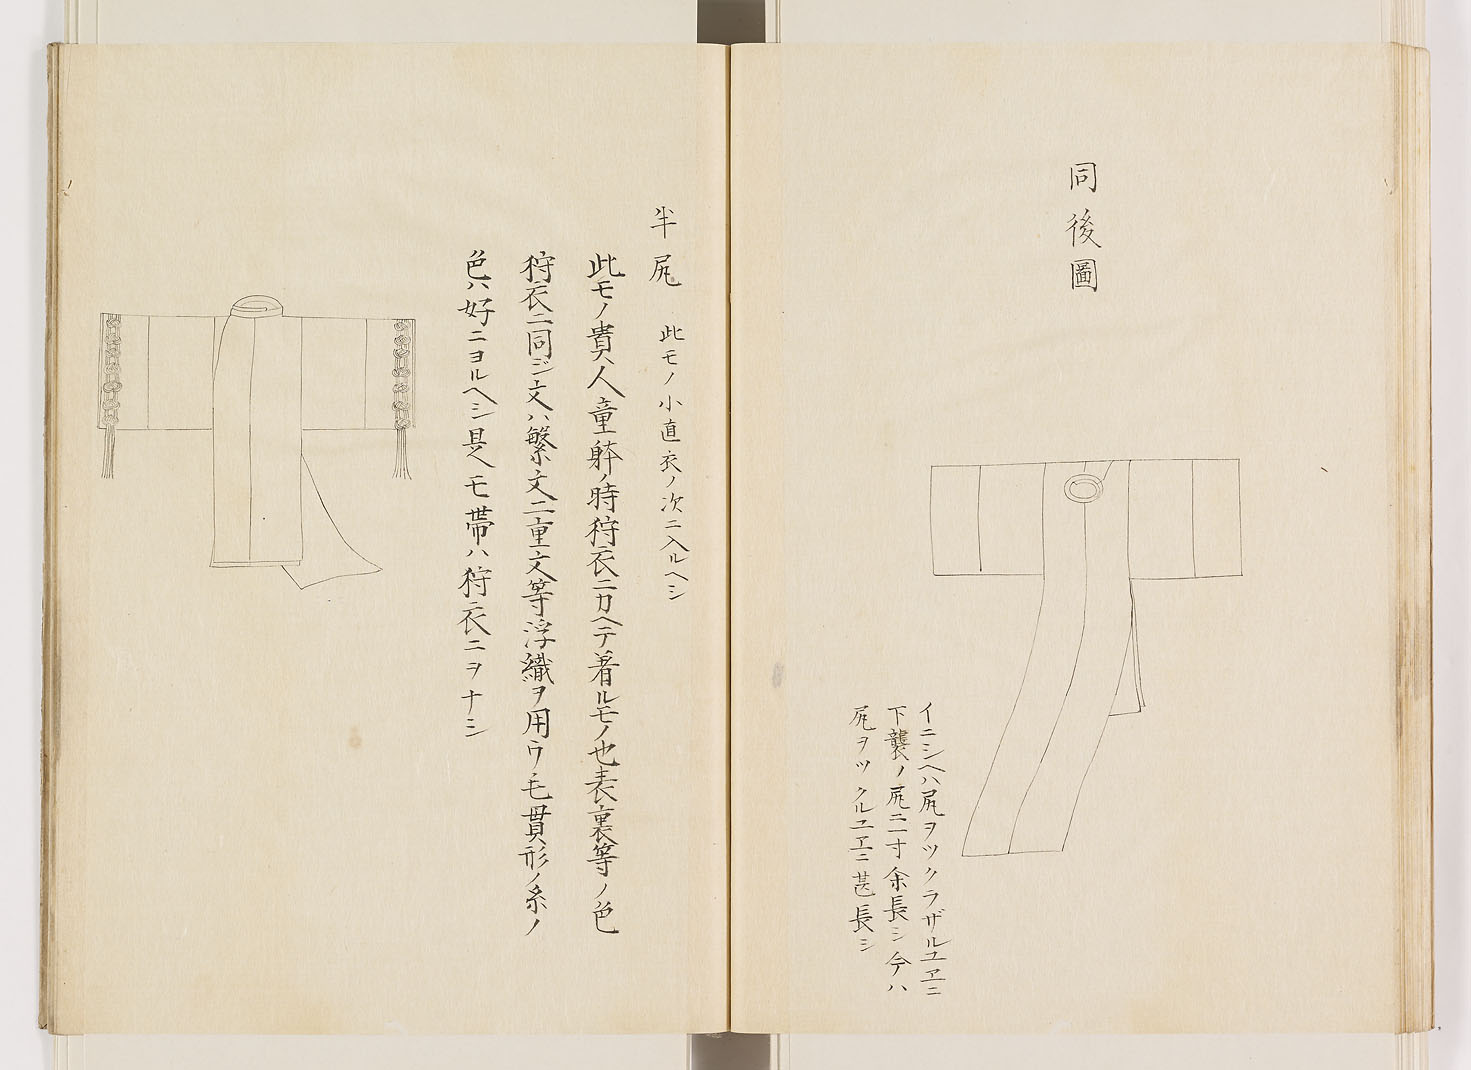 同後圖
イニシヘハ尻ヲツクラザルユヱニ
下襲ノ尻ニ一寸余長シ今ハ
尻ヲツクルユヱニ甚長シ
半尻 此モノ小直衣ノ次ニ入ルヘシ
此モノ貴人童躰ノ時狩衣ニカヘテ着ルモノ也表裏等ノ色
狩衣ニ同ジ文ハ繁文二重文等浮織ヲ用ウ毛貫形ノ糸ノ
色ハ好ニヨルヘシ是モ帯ハ狩衣ニヲナシ